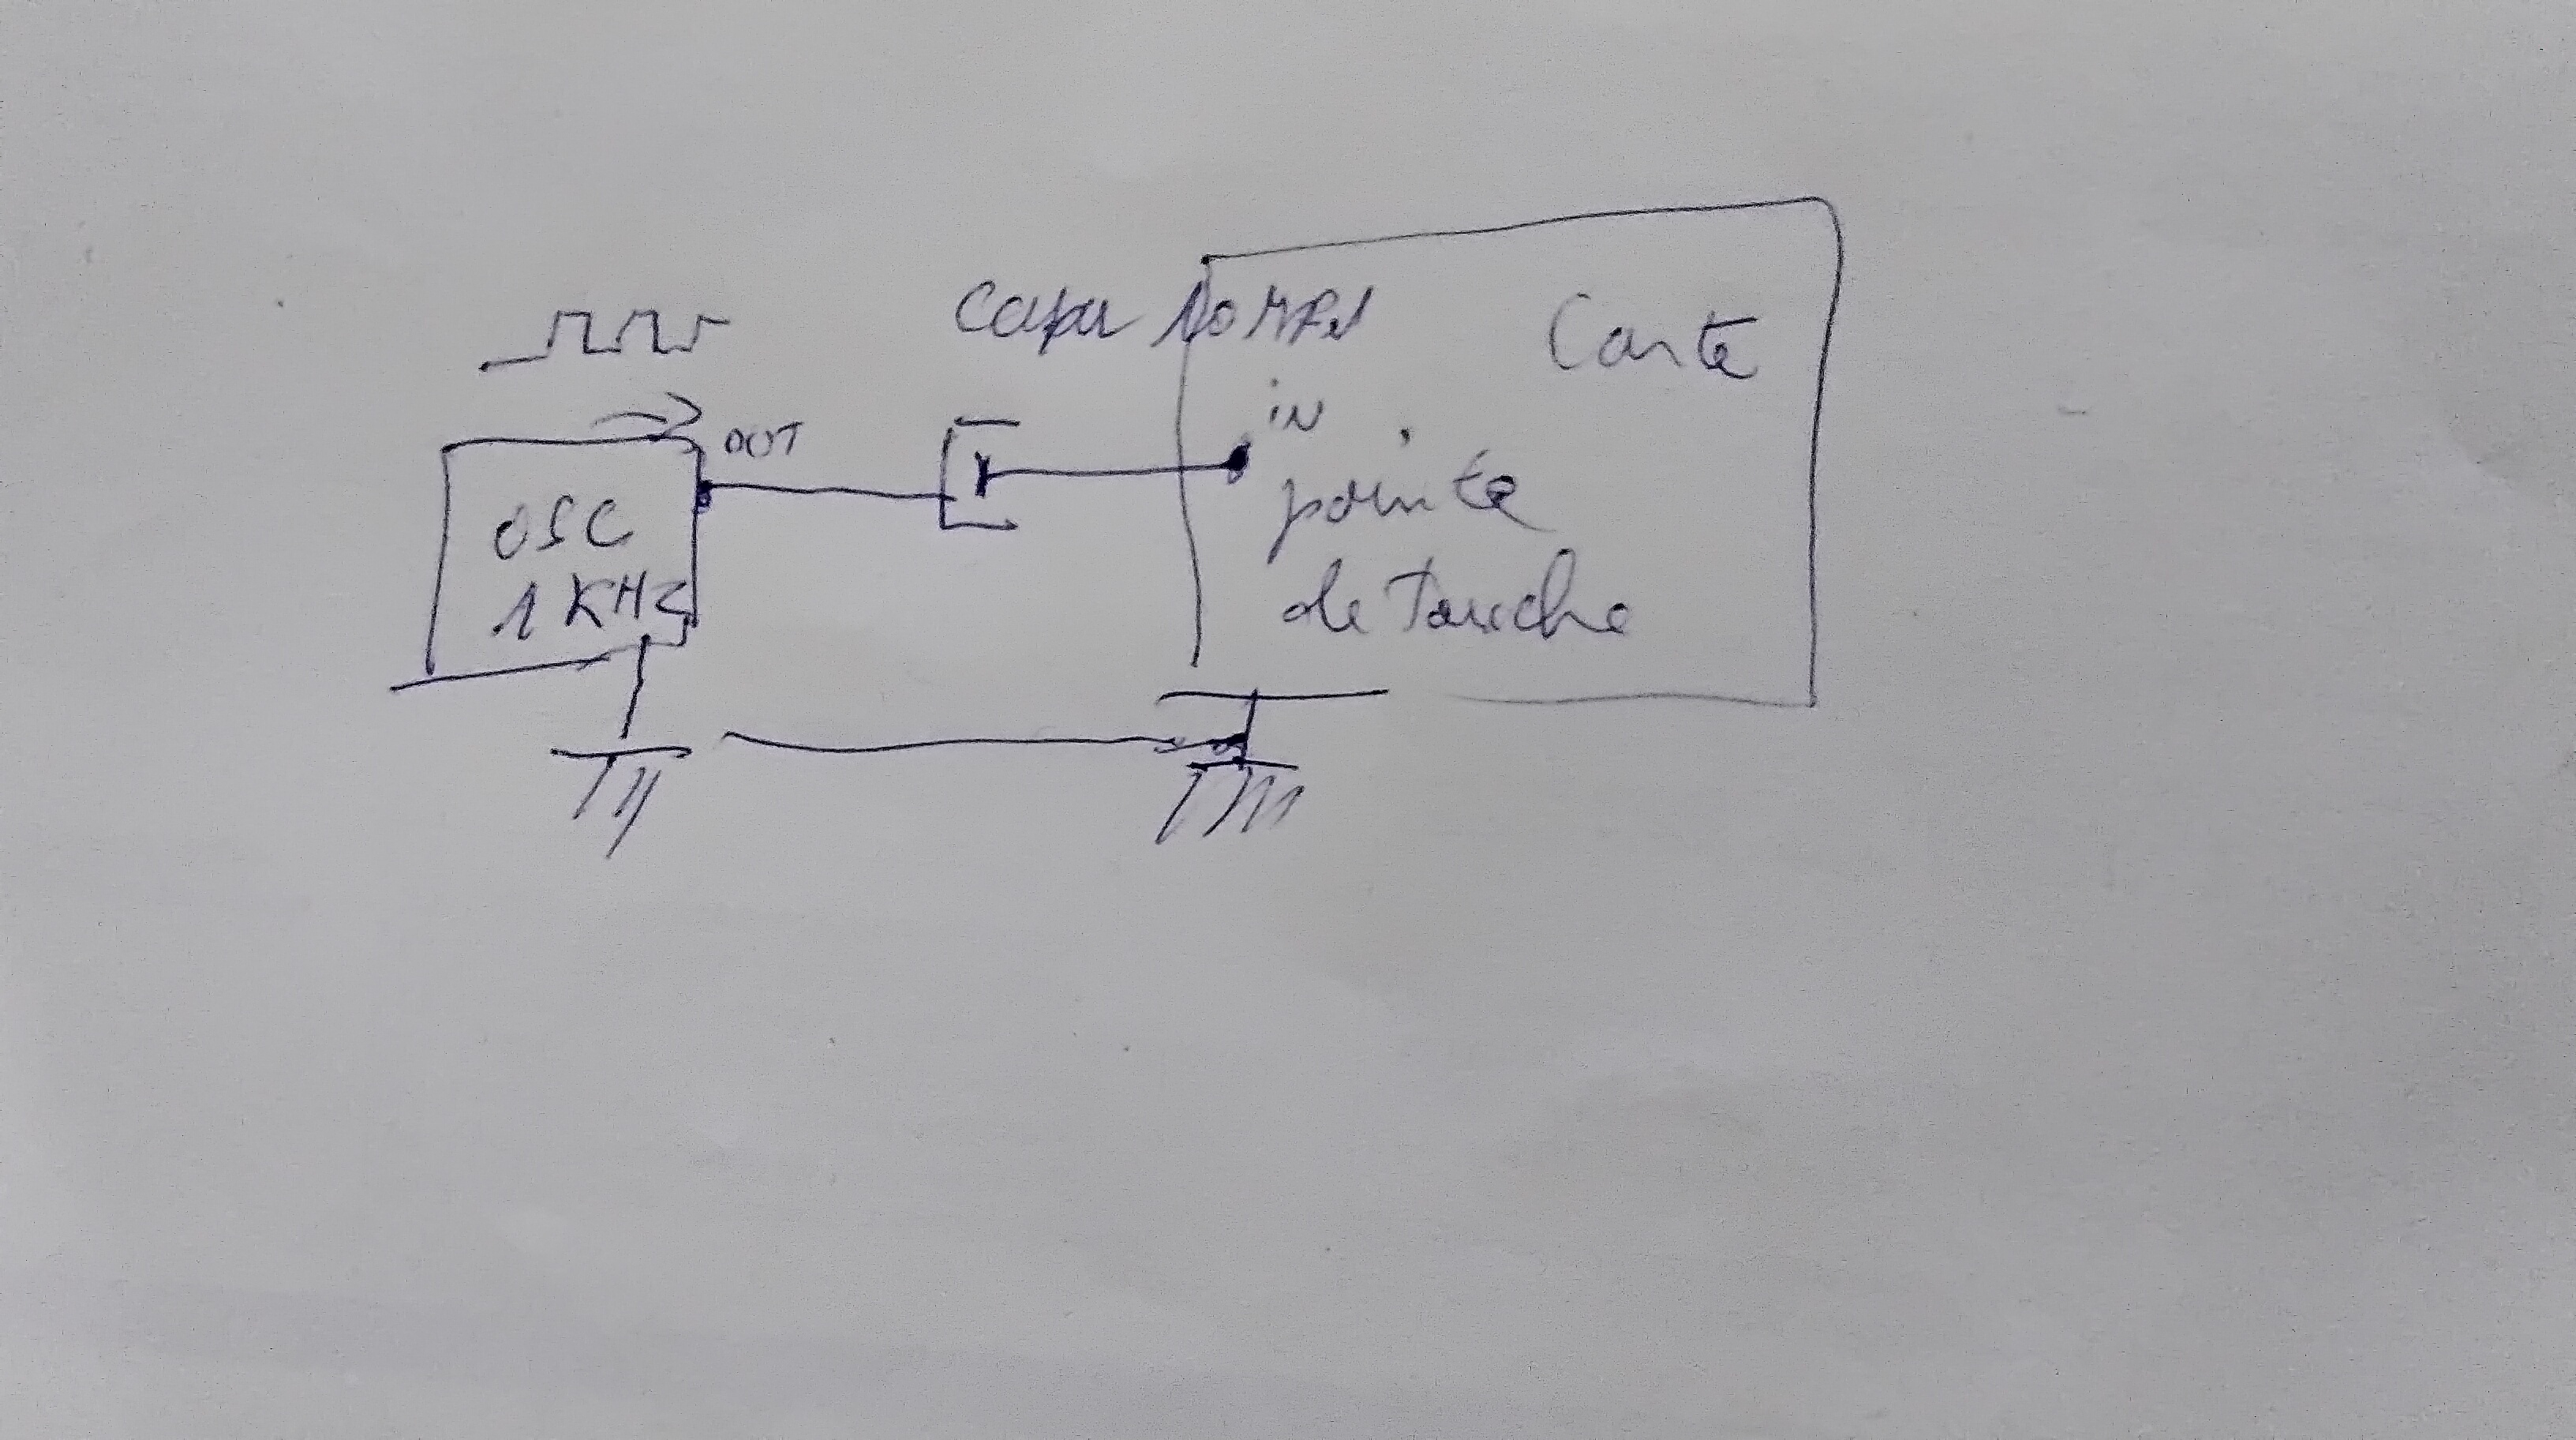 Capa 10 MFd
Carte
OUT
in
OSC
1 KHz
pointe
de Touche